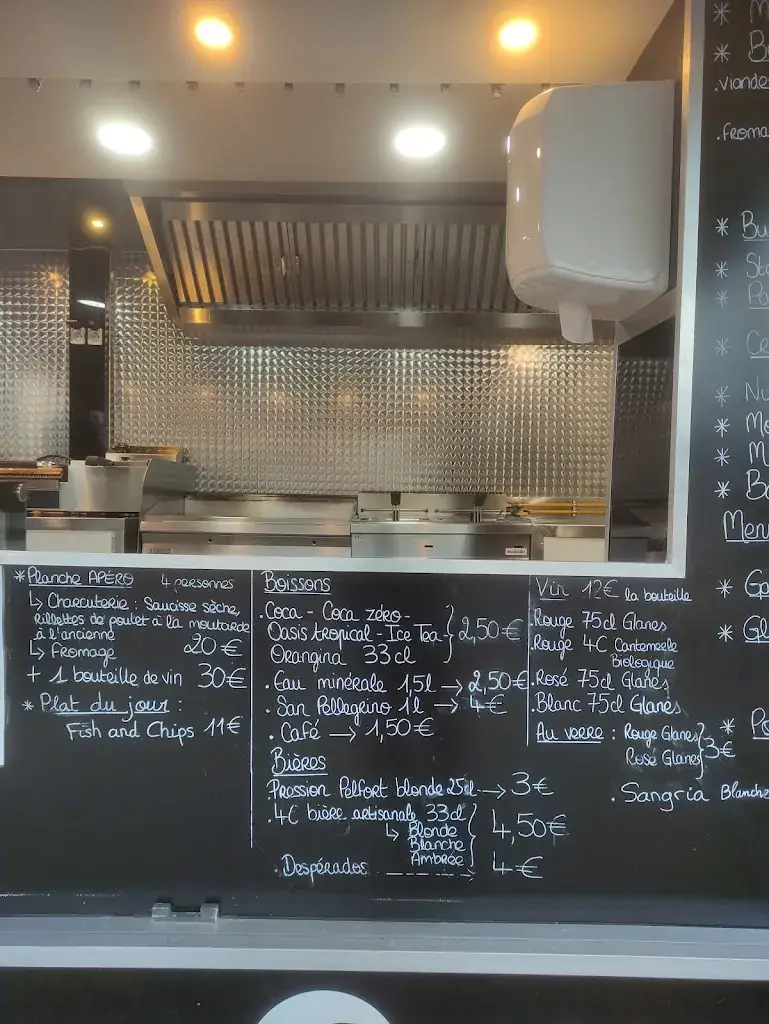 * Planche APÉRO 4 personnes
↳ Charcuterie : Saucisse sèche,
Rillettes de poulet à la moutarde
à l'ancienne
20€
↳ Fromage
+ 1 bouteille de vin 30€
* Plat du jour :
Fish and Chips 11€
Boissons
. Coca - Coca zéro -
Oasis tropical - Ice Tea
Orangina 33cl
2,50€
. Eau minérale 1,5l → 2,50€
. San Pellegrino 1l → 4€
. Café → 1,50€
Bières
. Pression Pelfort blonde 25cl → 3€
. 4C bière artisanale 33cl
↳ Blonde
Blanche
Ambrée
4,50€
. Despérados → 4€
Vin 12€ la bouteille
. Rouge 75cl Glanes
. Rouge 4C Cantemerle
Biologique
. Rosé 75cl Glanes
. Blanc 75cl Glanes
Au verre : Rouge Glanes
Rosé Glanes
3€
. Sangria Blanche
. viande
. froma
* Bu
* Ce
* Nu
Men